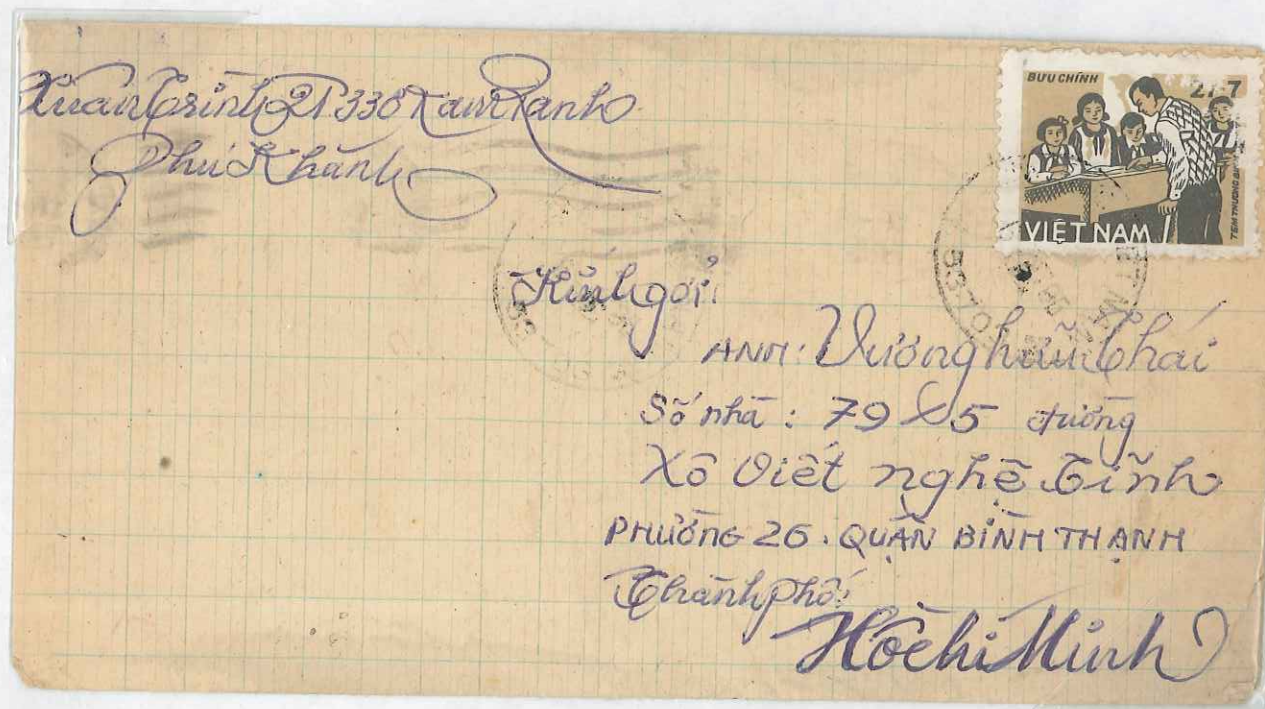 Xuân Trinh 21 330 Kam Ranh
Phú Khánh
BƯU CHÍNH
27-7
TEM THƯƠNG BINH
VIỆT NAM
Kính gởi:
ANH: Vương hữu Thái
Số nhà: 79 x5 đường
Xô Viết nghệ Tĩnh
PHƯỜNG 26. QUẬN BÌNH THẠNH
Thành phố:
Hồ chí Minh